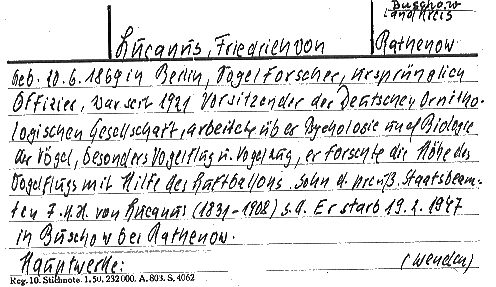 Buschow
Landkreis
Lucanus, Friedrich von
Rathenow
Geb. 10. 6. 1869 in Berlin, Vogelforscher, ursprünglich
Offizier, war seit 1921 Vorsitzender der Deutschen Ornitho-
logischen Gesellschaft, arbeitete über Psychologie und Biologie
der Vögel, besonders Vogelflug u. Vogelzug, erforschte die Höhe des
Vogelflugs mit Hilfe des Luftballons. Sohn d. preuß. Staatsbeam-
ten F. K. H. von Lucanus (1831-1908) s. d. Er starb 19. 2. 1947
in Buschow bei Rathenow.
Hauptwerke:
(wenden)
Reg. 10. Stichnote. 1.50, 232000. A. 803. S. 4062